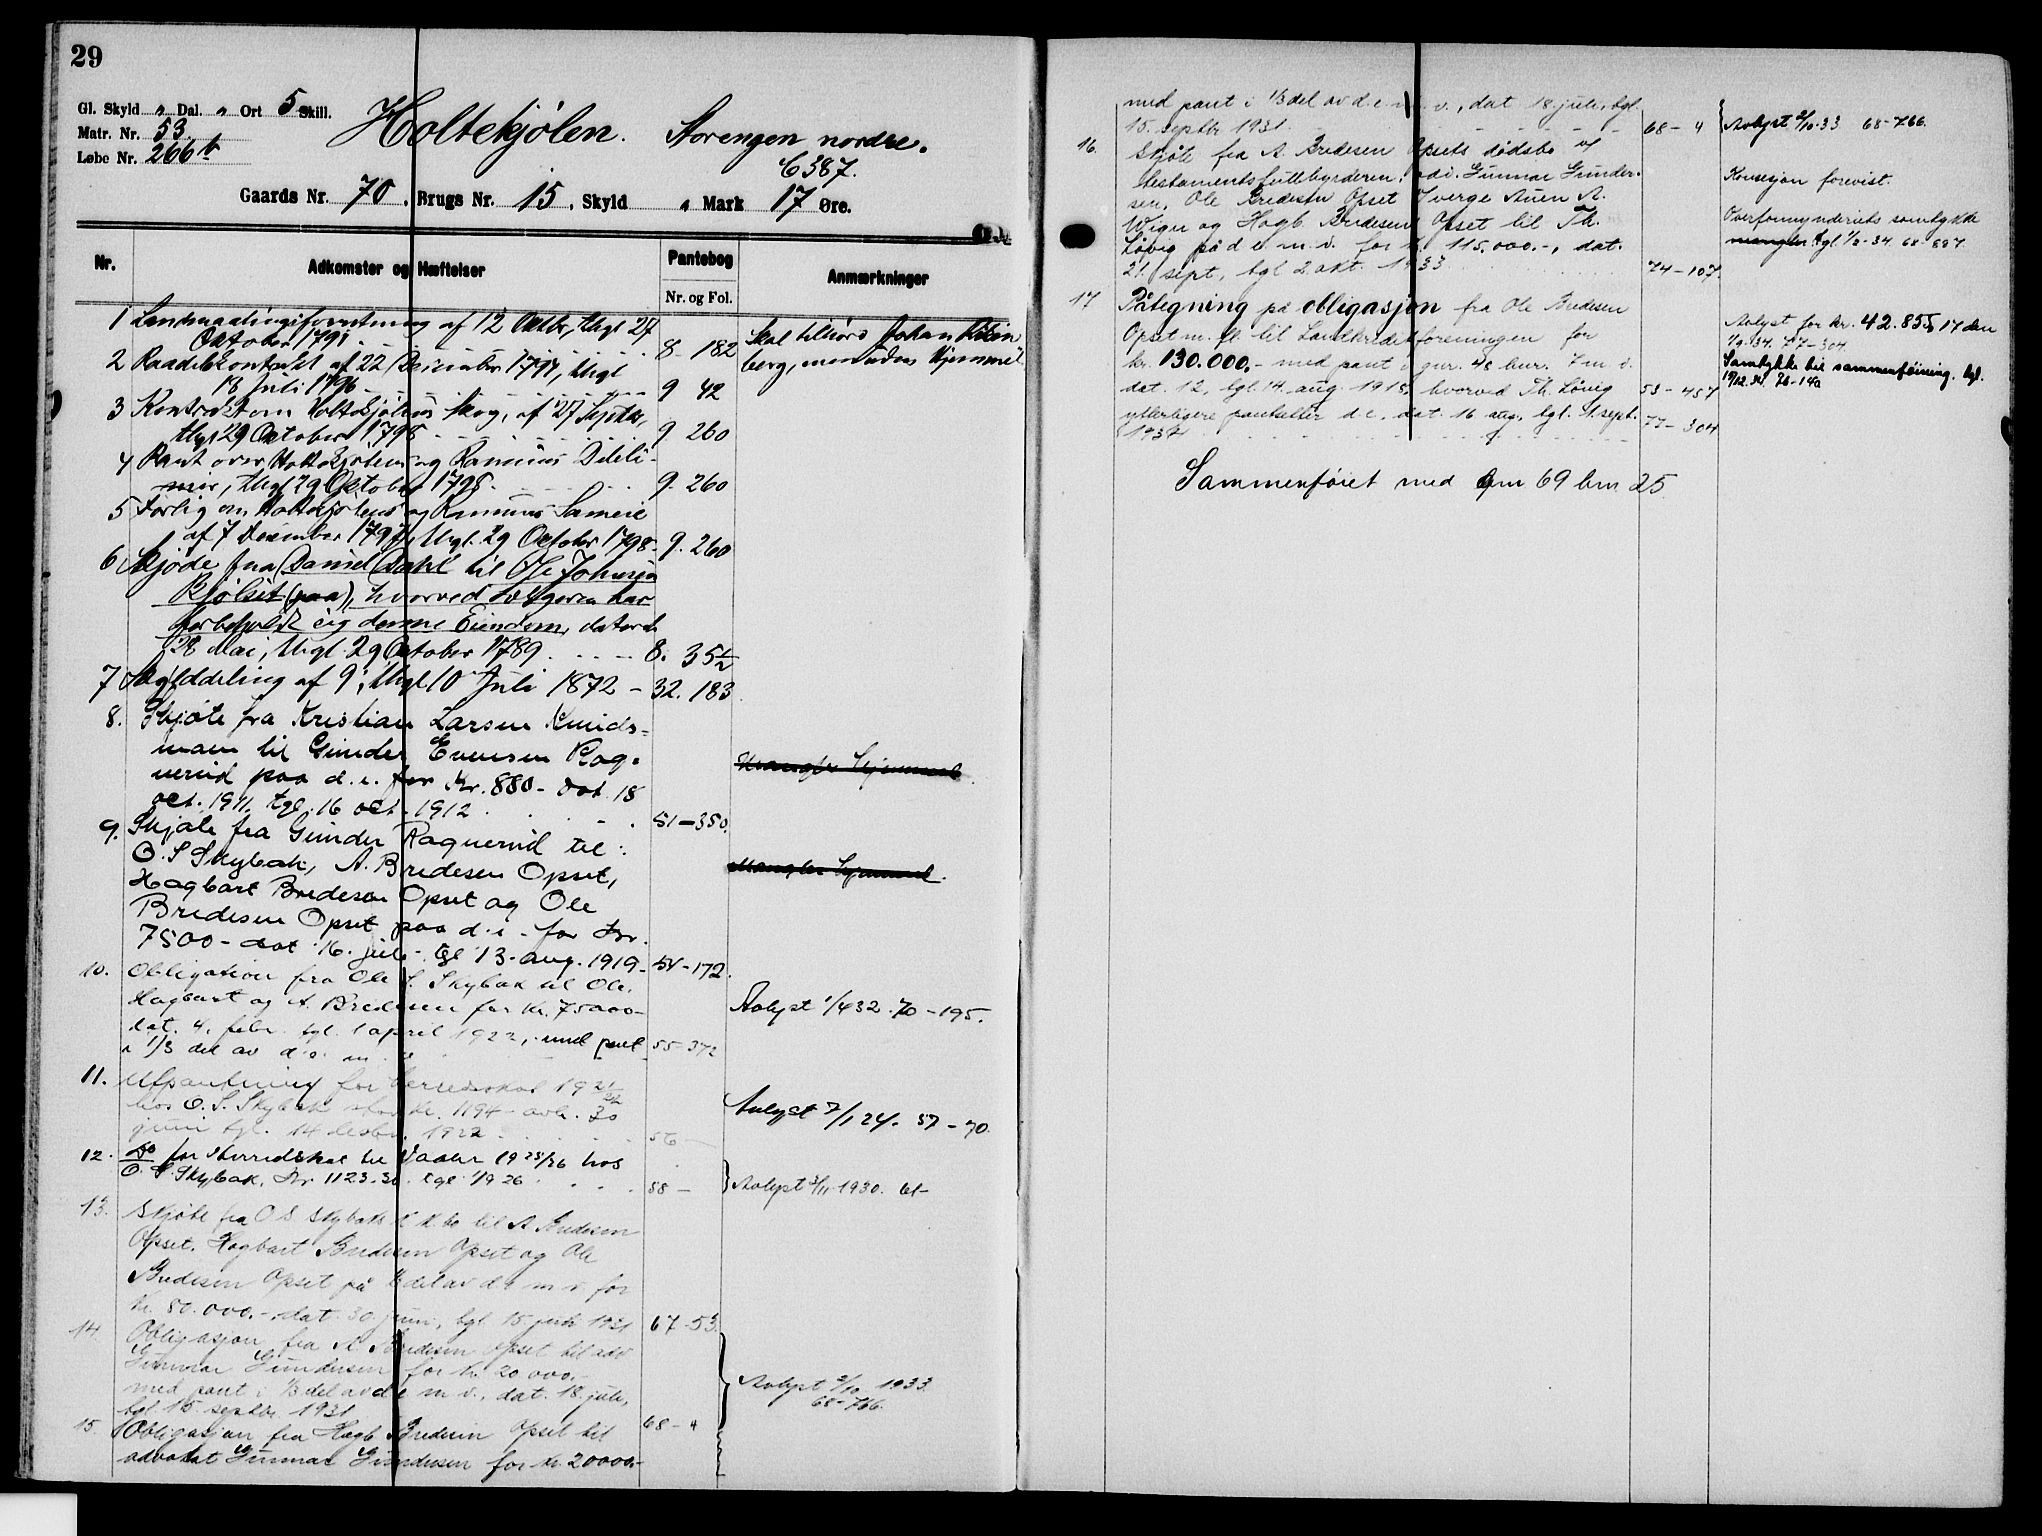 29
Gl. Skyld " Dal. " Ort 5 Skill.
Matr. Nr. 53.
Løbe Nr. 266 b
Holtekjølen. Storengen nordre.
C 387.
Gaards Nr. 70, Brugs Nr. 15, Skyld " Mark 17 Øre.
Nr. Adkomster og Hæftelser Pantebog Anmærkninger
Nr. og Fol.
1 af 12 Octbr, thgl 27
Oktober 1791 8 - 182 Skal tilhøre Johan
berg, men uden Hjemmel
2 Raadekontrakt af 22 December 1794, thgl
18 Juli 1796 9 42
3 Kontrakt om Holtekjølens Skog, af 27 Septbr,
thgl 29 Oktober 1798 9 260
4 Pant over Holtekjølens og
thgl 29 Oktober 1798 9. 260
5 Forlig om Holtekjølens og Sameie
af 7 December 1797, thgl. 29 October 1798 9. 260
6 Skjøde fra Daniel Dahl til Ole Johnsen
Kjølset (paa), hvorved Sælgeren har
forbeholdt sig denne Eiendom, dateret
28 Mai, thgl 29 Oktober 1789 8. 35 1/2
7 Skylddeling af 9, thgl 10 Juli 1872 - 32. 183
8. Skjøte fra Kristian Larsen Knuds-
moen til Gunder Evensen Rog-
nerud paa d. e. for Kr. 880 - dat. 18
oct. 1911. tgl. 16 oct. 1912 51 - 350. Mangler hjemmel.
9. Skjøte fra Gunder Rognerud til:
O. S Skybak, A. Bredesen Opset,
Hagbart Bredesen Opset og Ole
Bredesen Opset paa d. e - for Kr.
7500 - dat 16. juli - tgl 13. aug. 1919 - 54 - 172. Mangler hjemmel.
10. Obligation fra Ole S. Skybak til Ole,
Hagbart og A. Bredesen for kr. 75000 -
dat. 4. febr. tgl. 1 april 1922, med pant
i 1/3 del av d. e. m. v 55 - 372 Avlyst 1/4 32. 70 - 195.
11. Utpantning for herredsskat 1921/22
hos O. S. Skybak for kr. 1194 - avh. 30
juni tgl. 14 decbr. 1922 56 - Avlyst 7/1 24. 57 - 70.
12. Do for herredskat til Vaaler 1925/26 hos
O. S. Skybak, Kr 1123.30. tgl 1926 58 - Avlyst 3/11 1930. 61 -
13. Skjøte fra O S Skybaks k. k. bo til A Bredesen
Opset, Hagbart Bredesen Opset og Ole
Bredesen Opset på 1/3 del av d. e m v for
kr. 80.000.-, dat. 30 juni, tgl 15 juli 1931 67 - 53.
14. Obligasjon fra A. Bredesen Opset til adv
Gunnar Gundersen for kr. 20 000.-
med pant i 1/3 del av d e m v., dat. 18. juli,
tgl. 15. septbr 1931 68 - 4 Avlyst 2/10 1933.
68 - 766.
15. Obligasjon fra Hagb. Bredesen Opset til
advokat Gunnar Gundersen for kr. 20000.-
med pant i 1/3 del av d. e m. v., dat. 18. juli, tgl.
15. septbr 1931. 68 - 4 Avlyst 2/10 33 68 - 766.
16. Skjøte fra A. Bredesen Opsets dødsbo v/
testamentsfuldbyrderen, adv. Gunnar Gunder-
sen, Ole Bredesen Opset v/verge Auen A.
Wiger og Hagb. Bredesen Opset til Th.
Løvig på d. e. m. v. for kr. 115.000.-, dat.
21. sept, tgl 2 okt. 1933 74 - 107.
Konsesjon forevist.
Overformynderiets samtykke
mangler. tgl 1/2 - 34. 68 - 897.
17 Påtegning på obligasjon fra Ole Bredesen
Opset m. fl. til Landkreditforeningen for
kr. 130.000.- med pant i gnr. 48 bnr. 7 m. v.
dat. 12, tgl. 14. aug. 1918, hvorved Th. Løvig
ytterligere pantsetter d. e. dat. 16 aug, tgl. 1. sept.
1934 53 - 457
77 - 304
Avlyst for kr. 42.855, 17 den
1/9 34. 77 - 304
Samtykke til sammenføining. tgl.
19/12. 34. 78 - 140
Sammenføiet med gnr 69 bnr 25.